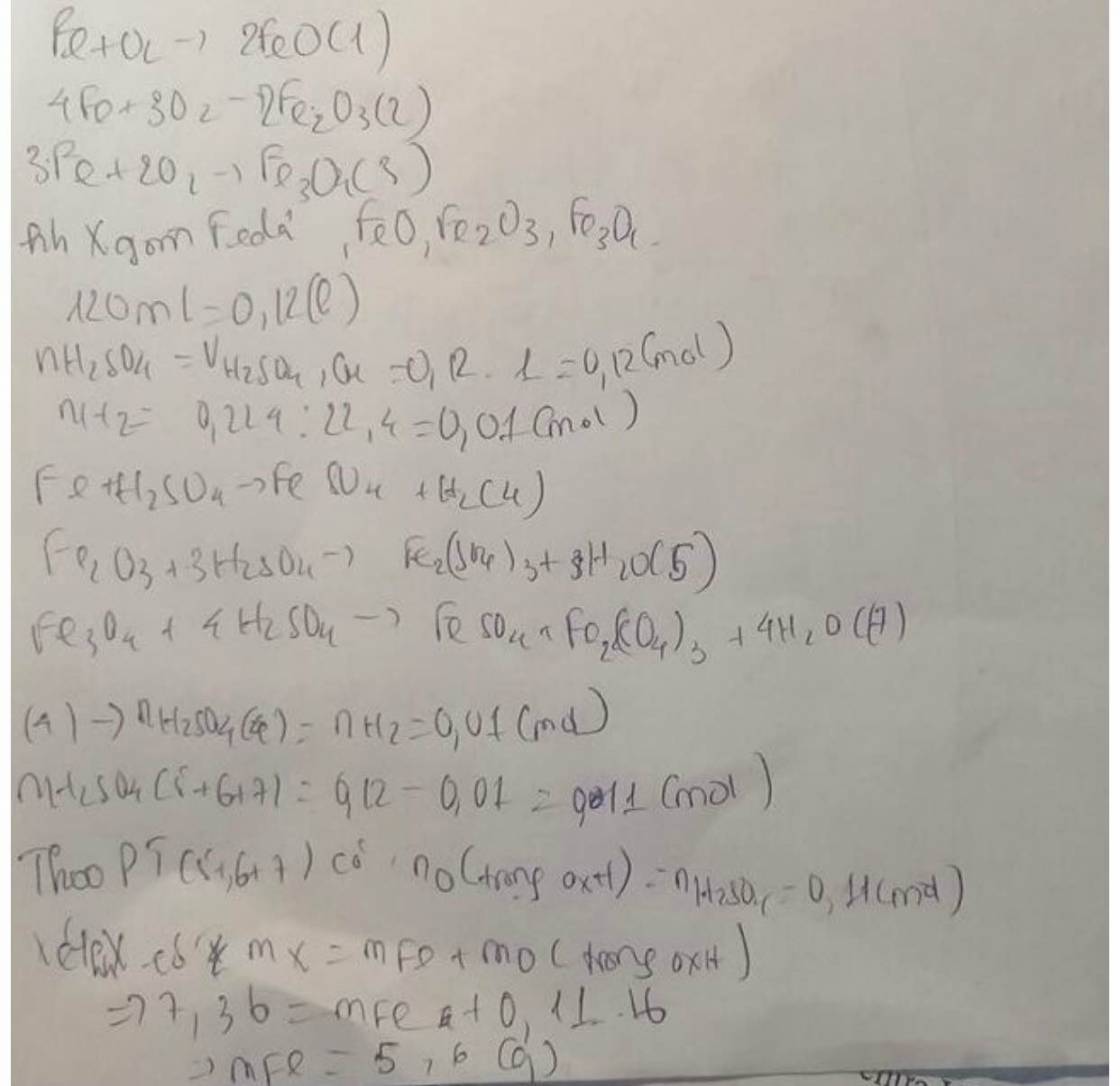 Fe+O2 → 2FeO(1)
4Fe+3O2 - 2Fe2O3(2)
3Fe+2O2 → Fe3O4(3)
hh X gồm Fe dư, FeO, Fe2O3, Fe3O4.
120ml=0,12(l)
nH2SO4 = VH2SO4 . CM =0,12. 1 =0,12(mol)
nH2= 0,224:22,4=0,01(mol)
Fe+H2SO4→Fe SO4 +H2(4)
Fe2O3+3H2SO4→ Fe2(SO4)3+3H2O(5)
Fe3O4 + 4H2SO4 → FeSO4+Fe2(SO4)3 +4H2O(7)
(4) → nH2SO4(4) = nH2=0,01(mol)
nH2SO4(5+6+7) = 0,12 - 0,01 = 0,11 (mol)
Theo PT(5+6+7) có nO(trong oxit) = nH2SO4 = 0,11(mol)
có mX = mFe + mO (trong oxit)
=>7,36 = mFe + 0,11.16
→ mFe = 5,6 (g)